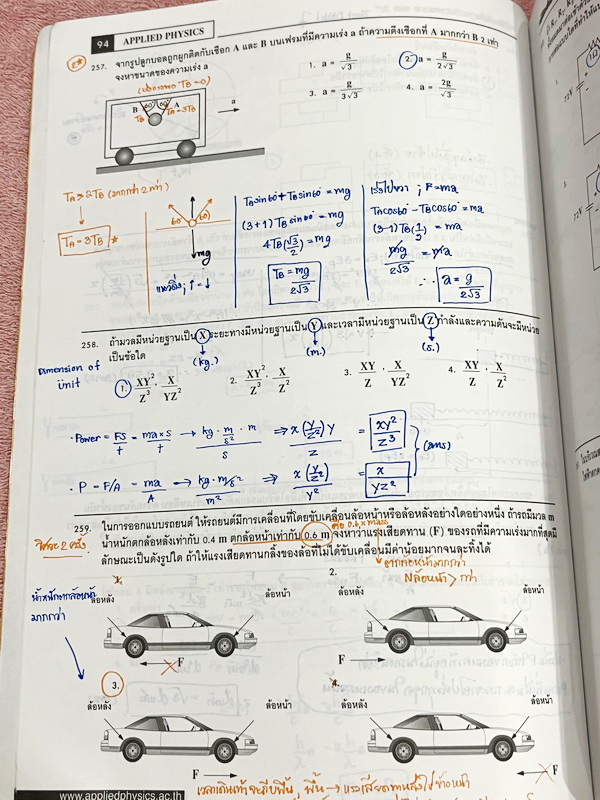 94 APPLIED PHYSICS
257. จากรูปลูกบอลถูกผูกติดกับเชือก A และ B บนเฟรมที่มีความเร่ง a ถ้าความตึงเชือกที่ A มากกว่า B 2 เท่า
จงหาขนาดของความเร่ง a
1. a = g/√3
2. a = g/2√3
3. a = g/3√3
4. a = 2g/√3
B 60° 60° A
TB TA=3TB
a
TA > 2TB (มากกว่า 2 เท่า)
TA = 3TB
60° 60°
mg
แนวดิ่ง ; ↑ = ↓
TA sin60° + TB sin60° = mg
(3+1) TB sin60° = mg
4TB(√3/2) = mg
TB = mg/2√3
; F = ma
TA cos60° - TB cos60° = ma
(3-1)TB(1/2) = ma
mg/2√3 = ma
∴ a = g/2√3
258. ถ้ามวลมีหน่วยฐานเป็น X ระยะทางมีหน่วยฐานเป็น Y และเวลามีหน่วยฐานเป็น Z กำลังและความดันจะมีหน่วย
เป็นข้อใด
(kg.) (m.) (s.)
Dimension of
Unit
1. XY²/Z³ · X/YZ²
2. XY²/Z³ · X/Z²
3. XY/Z · X/YZ
4. XY/Z · X/Z²
· Power = FS/t = ma×s/t → kg · m/s² · m / s ⇒ x(Y/Z²)Y / Z = XY²/Z³
(ans)
· P = F/A = ma/A → kg·m/s² / m² ⇒ x(Y/Z²) / Y² = X/YZ²
259. ในการออกแบบรถยนต์ ให้รถยนต์มีการเคลื่อนที่โดยขับเคลื่อนล้อหน้าหรือล้อหลังอย่างใดอย่างหนึ่ง ถ้ารถมีมวล m
น้ำหนักตกล้อหลังเท่ากับ 0.4 m ตกล้อหน้าเท่ากับ 0.6 m จงหาว่าแรงเสียดทาน (F) ของรถที่มีความเร่งมากที่สุดมี
ลักษณะเป็นดังรูปใด ถ้าให้แรงเสียดทานกลิ้งของล้อที่ไม่ได้ขับเคลื่อนมีค่าน้อยมากจนละทิ้งได้
น้ำหนักตกล้อหน้า
มากกว่า
ตกล้อหน้ามากกว่า
Nล้อหน้า > กว่า
1.
ล้อหลัง ล้อหน้า
F
2.
ล้อหลัง ล้อหน้า
F
3.
ล้อหลัง ล้อหน้า
F
4.
ล้อหลัง ล้อหน้า
F
www.appliedphysics.ac.th